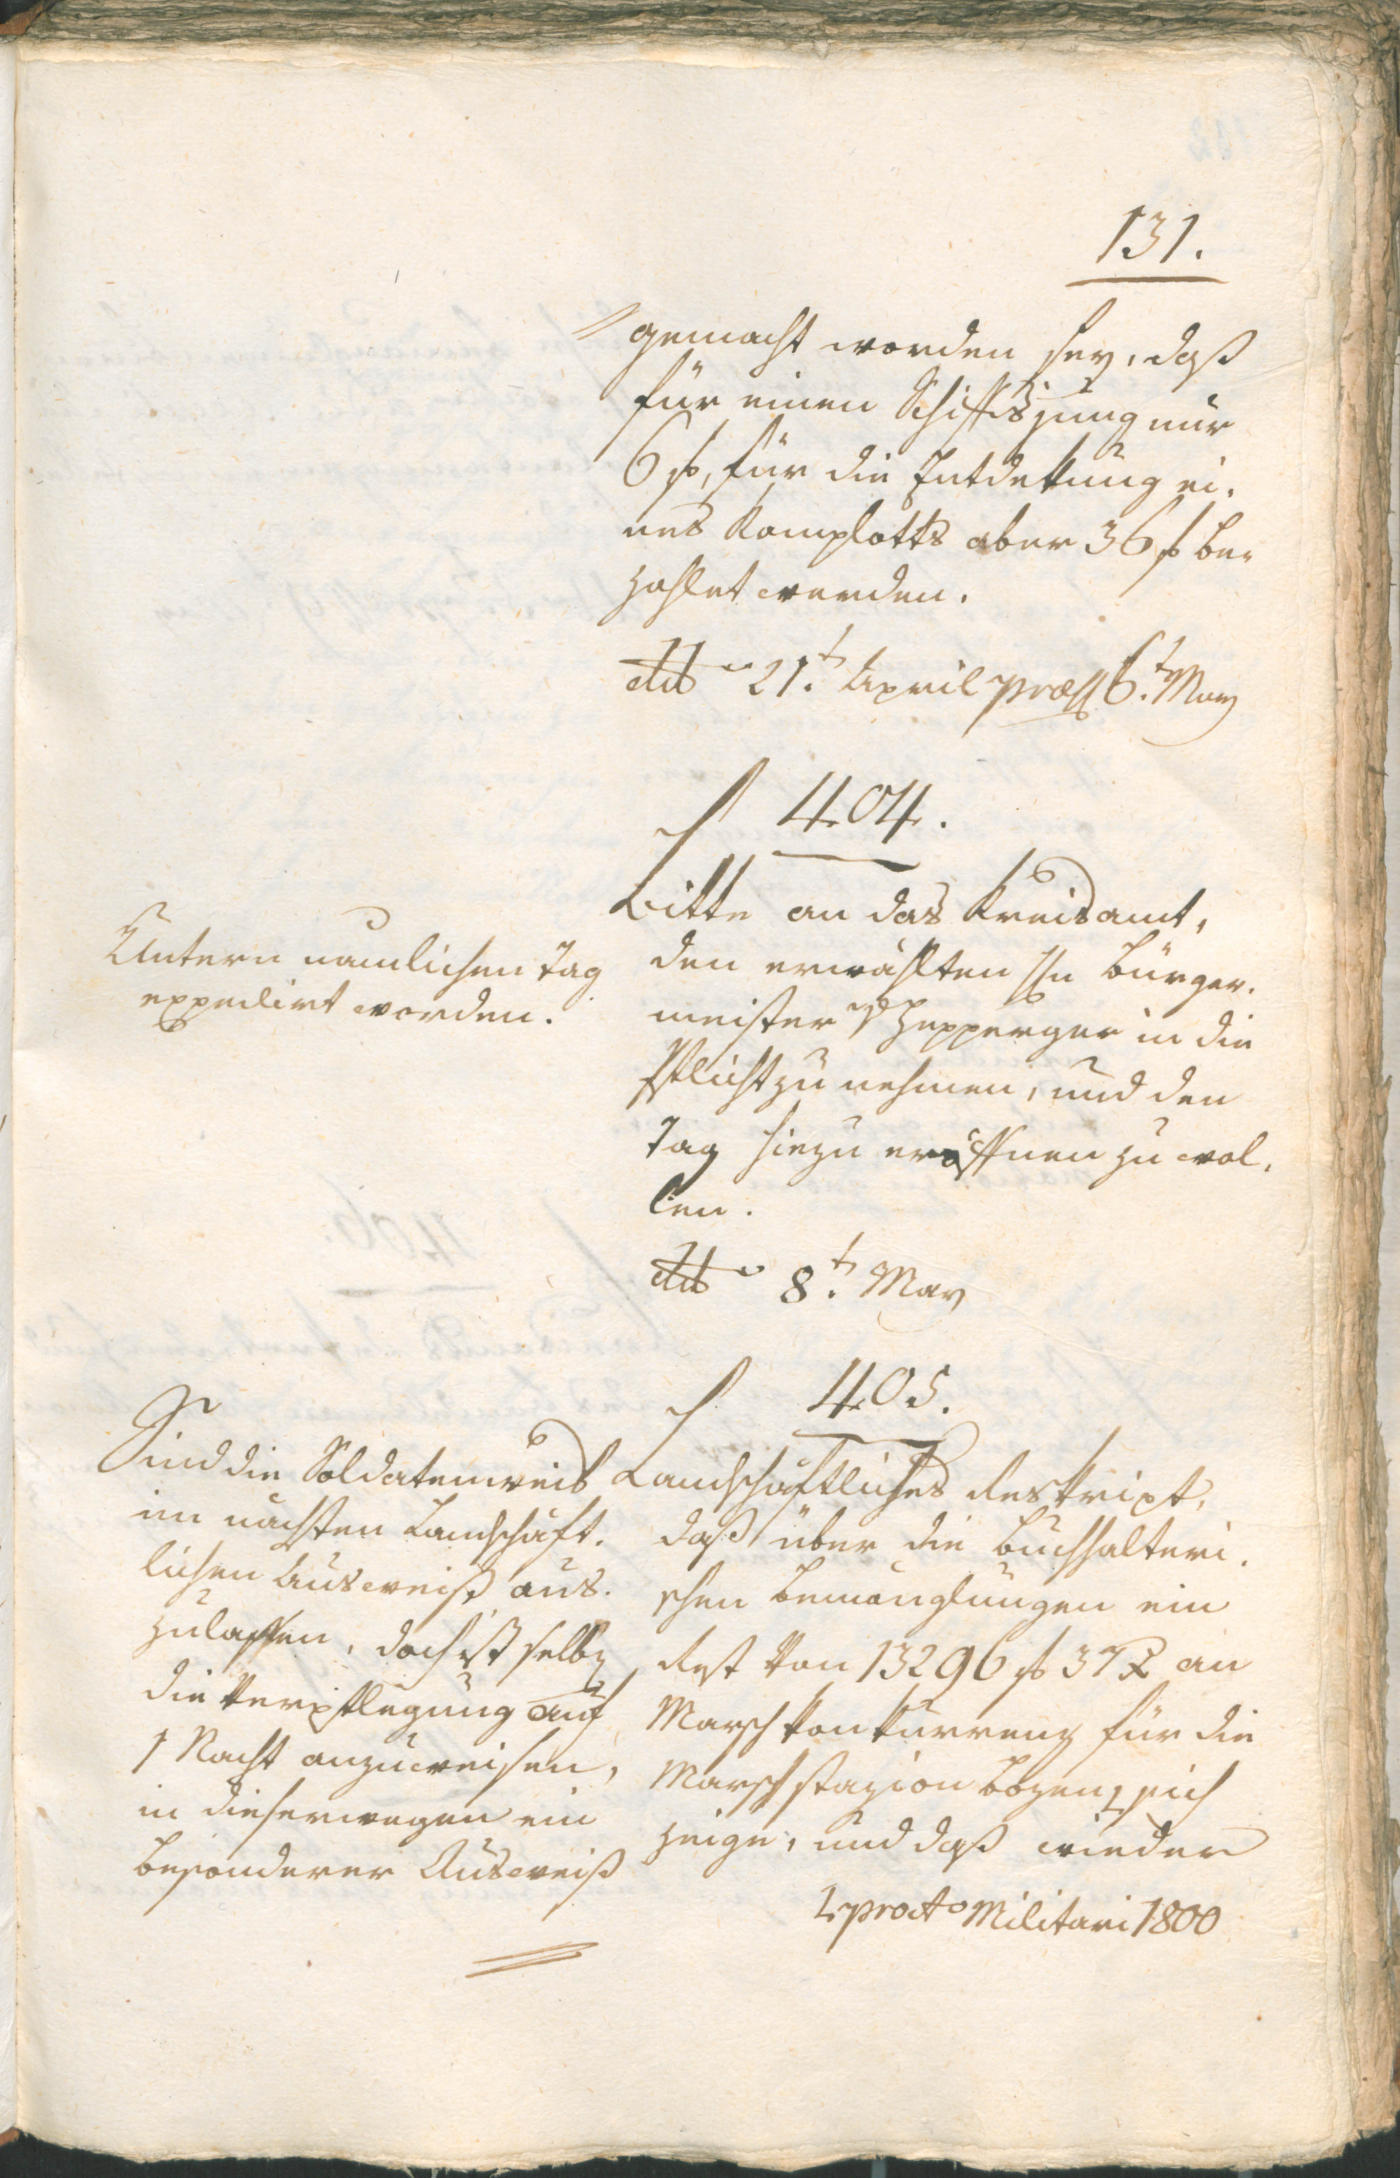 131.
gemacht worden sey, daß
für einen Schiffsjung nur
6 f, für die Entdekung ei,
nes Komplotts aber 36 f be,
zahlet werden.
dto 21.t April præs 6.t May
404.
Bitte an das Kreisamt,
den erwählten Hn Bürger,
meister v Zepperger in die
Pflicht zu nehmen, und den
Tag hiezu eröffnen zu wol,
len.
dto 8.t May
Untern nämlichen Tag
expedirt worden.
405.
Landschäftliches Reskript,
daß über die buchhalteri,
schen Bemänglungen ein
Rest von 13296 f 37 x an
Marschkonkurrenz für die
Marschstazion Bozen sich
zeige, und daß wieder
pro Militari 1800
Sind die Soldatenweib
im nächsten Landschäft,
lichen Ausweiß aus,
zulassen, doch ist selby
die Verpflegung auf
1 Nacht anzuweisen,
in dieserwegen ein
besonderer Ausweiß